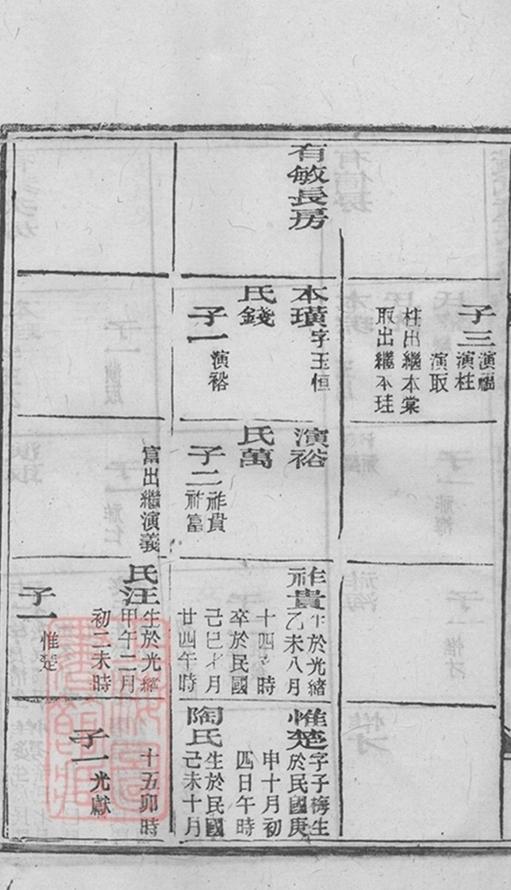 有敏長房
子三演福
演柱
演取
柱出繼本棠
取出繼本珪
本璜字玉恒
氏錢
子一演裕
演裕
氏萬
子二祚貴
祚富
富出繼演義
祚貴生於光緒
乙未八月
十四 時
卒於民國
己巳 月
廿四午時
氏汪生於光緒
甲午二月
初二未時
子一惟楚
惟楚字子梅生
於民國庚
申十月初
四日午時
陶氏生於民國
己未十月
十五卯時
子一光獻